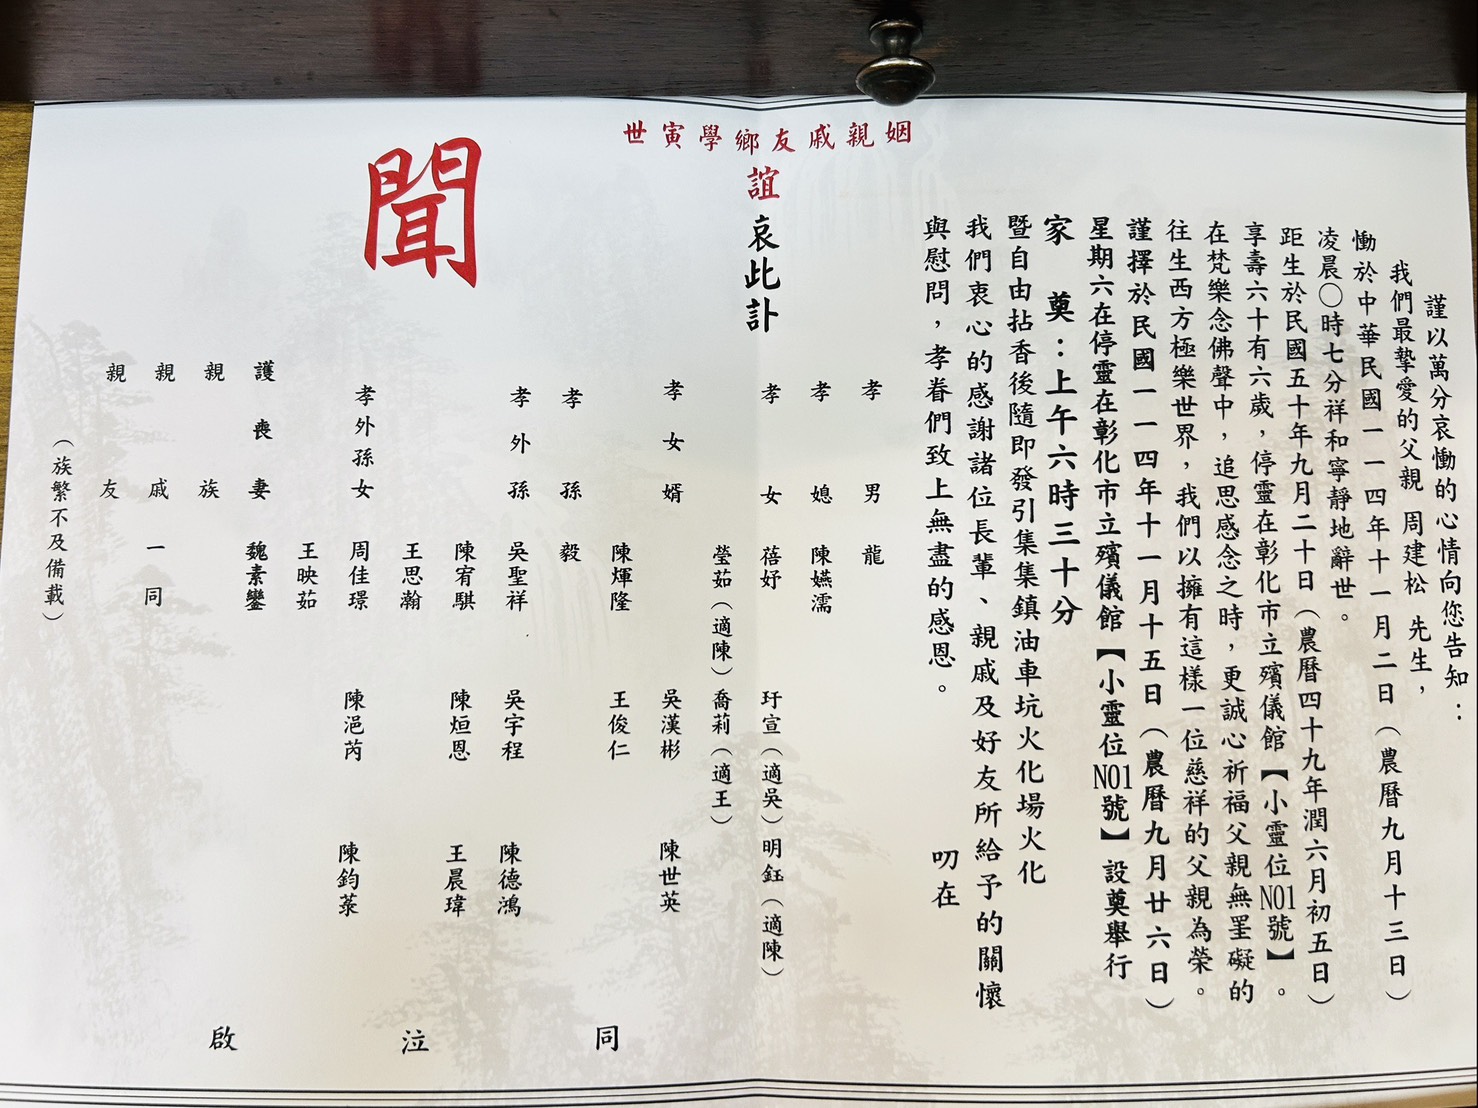 謹以萬分哀慟的心情向您告知：
我們最摯愛的父親 周建松 先生，
慟於中華民國一一四年十一月二日（農曆九月十三日）
凌晨○時七分祥和寧靜地辭世。
距生於民國五十年九月二十日（農曆四十九年潤六月初五日）
享壽六十有六歲，停靈在彰化市立殯儀館【小靈位N01號】。
在梵樂念佛聲中，追思感念之時，更誠心祈福父親無罣礙的
往生西方極樂世界，我們以擁有這樣一位慈祥的父親為榮。
謹擇於民國一一四年十一月十五日（農曆九月廿六日）
星期六在停靈在彰化市立殯儀館【小靈位N01號】設奠舉行
家 奠：上午六時三十分
暨自由拈香後隨即發引集集鎮油車坑火化場火化
我們衷心的感謝諸位長輩、親戚及好友所給予的關懷
與慰問，孝眷們致上無盡的感恩。 叨在
姻親戚友鄉學寅世
誼 哀此訃
聞
孝男 龍
孝媳 陳嬿濡
孝女 蓓妤 玗宣（適吳） 明鈺（適陳）
瑩茹（適陳） 喬莉（適王）
孝女婿 吳漢彬 陳世英
陳煇隆 王俊仁
孝孫 毅
孝外孫 吳聖祥 吳宇程 陳德鴻
陳宥騏 陳烜恩 王晨瑋
王思瀚
孝外孫女 周佳璟 陳浥芮 陳鈞蒤
王映茹
護喪妻 魏素鑾
親族
親戚 一同
親友
（族繁不及備載）
同 泣 啟